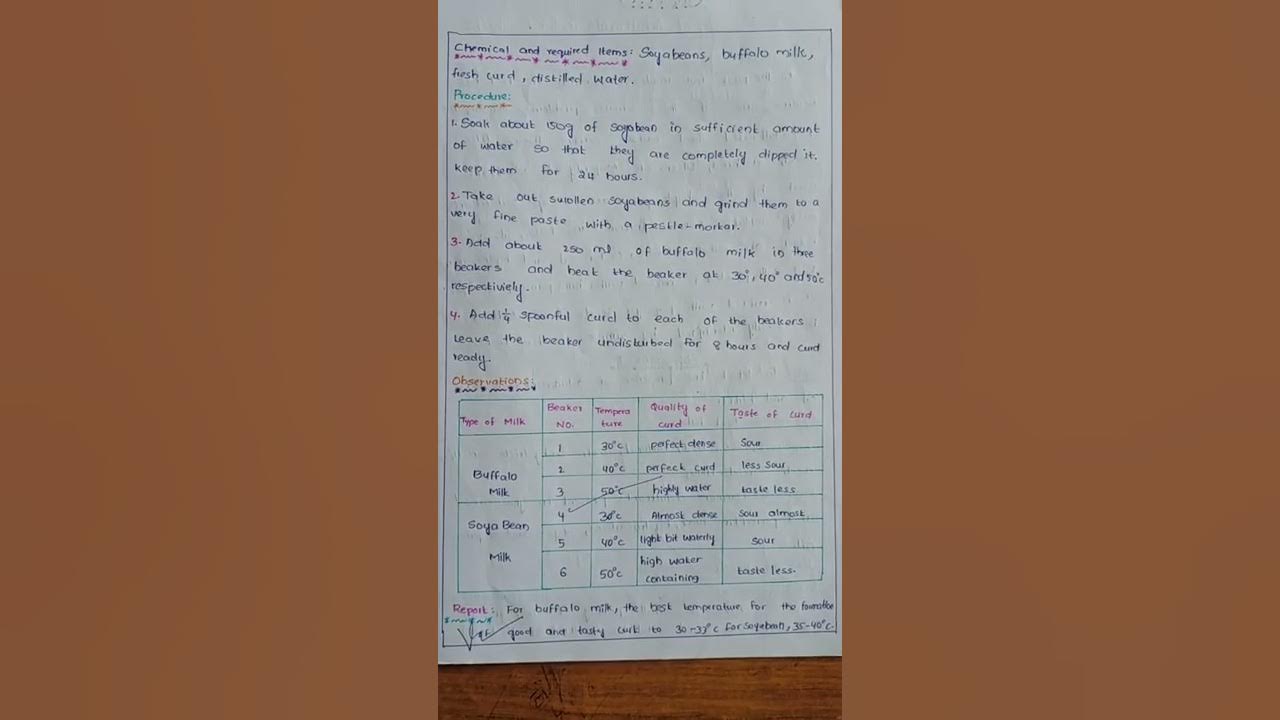 Chemical and required Items: Soyabeans, buffalo milk,
fresh curd, distilled water.
Procedure:
1. Soak about 150g of soyabean in sufficient amount
of water so that they are completely dipped it.
keep them for 24 hours.
2. Take out swollen soyabeans and grind them to a
very fine paste with a pestle-mortar.
3. Add about 250 ml of buffalo milk in three
beakers and heat the beaker at 30°, 40° and 50°c
respectiviely.
4. Add 1/4 spoonful curd to each of the beakers
Leave the beaker undisturbed for 8 hours and curd
ready.
Observations:
Type of Milk Beaker NO. Tempera ture Quality of curd Taste of curd
Buffalo Milk 1 30°c perfect dense Sour
2 40°c perfect curd less sour
3 50°c highly water taste less
Soya Bean Milk 4 30°c Almost dense Sour almost
5 40°c light bit waterly sour
6 50°c high water containing taste less.
Report: For buffalo milk, the best temperature for the formation
of good and tasty curd to 30-33°c for soyabean, 35-40°c.